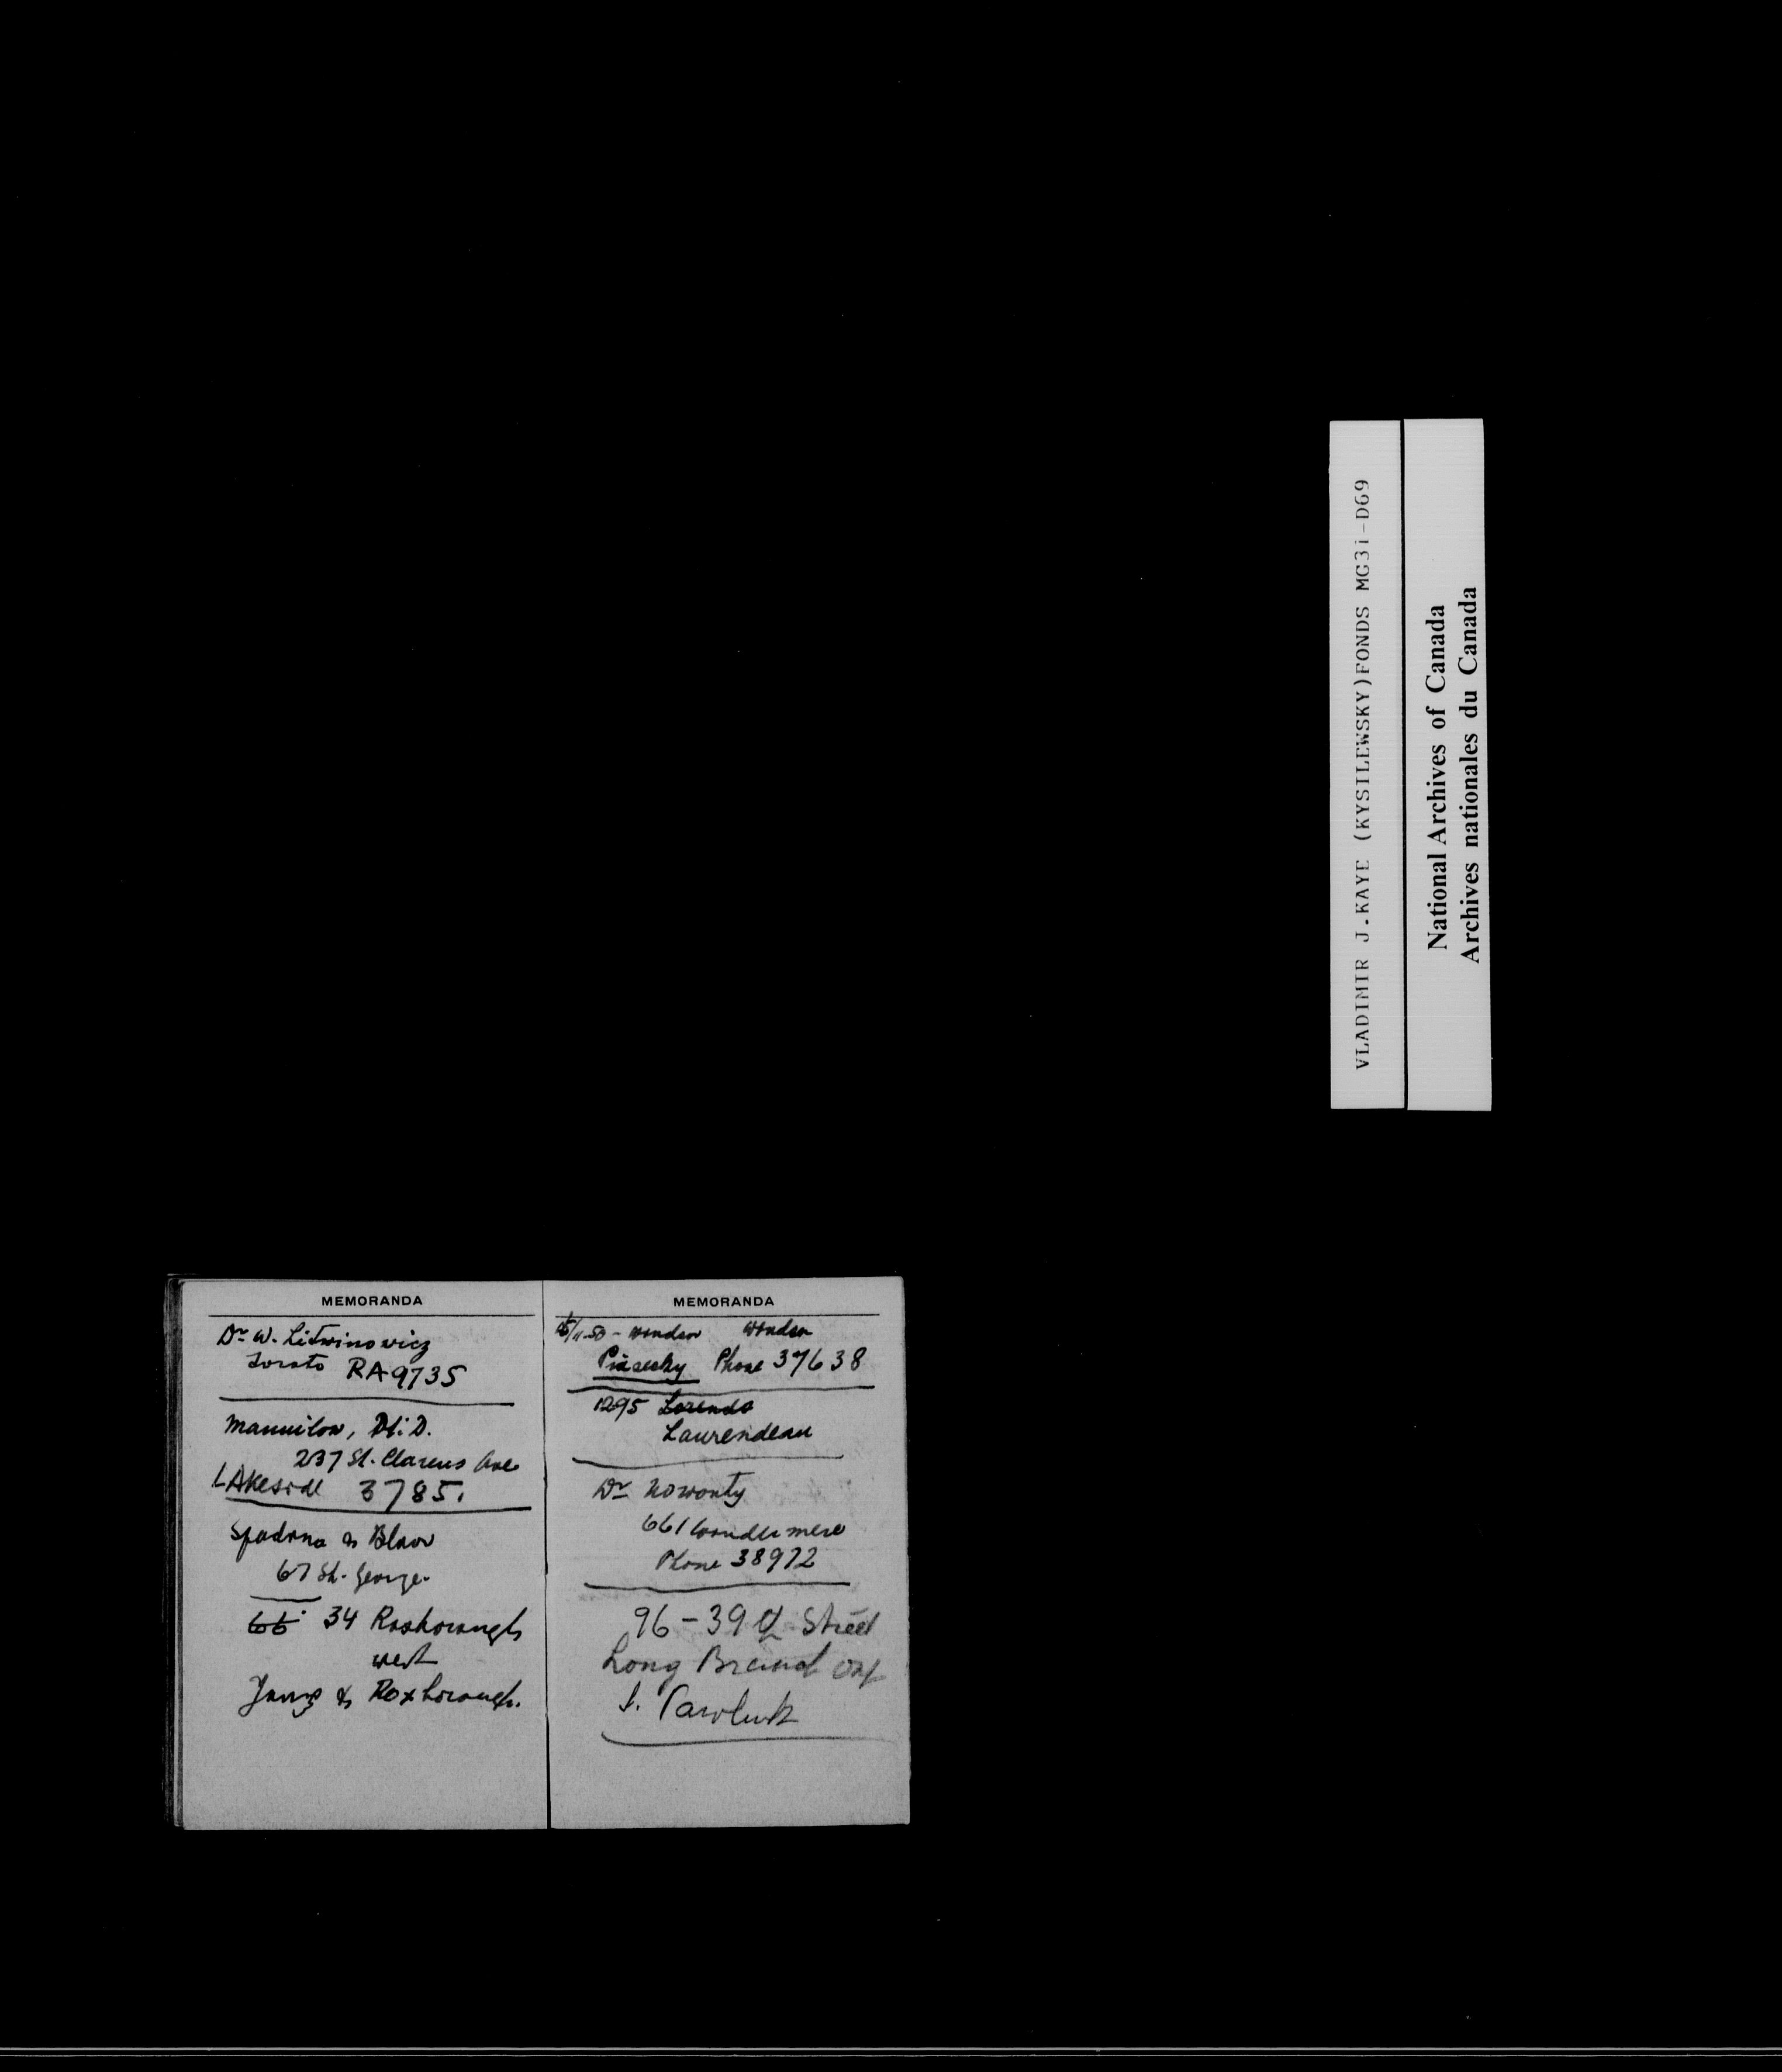 MEMORANDA
Dr W. Litwinowicz
Toronto RA-9735
237 St. Clarens Ave
LAkeside 3785.
Spadina & Bloor
67 St. George.
34 Roxborough
west
& Roxborough.
MEMORANDA
/11-50 - Windsor Windsor
Piasecky Phone 37638
1295 Lorendo
Laurendeau
Dr Nowonty
661 Windermere
Phone 38972
96 - 39th Street
Long Branch Ont
VLADIMIR J.KAYE (KYSILEWSKY)FONDS MG31-D69
National Archives of Canada
Archives nationales du Canada